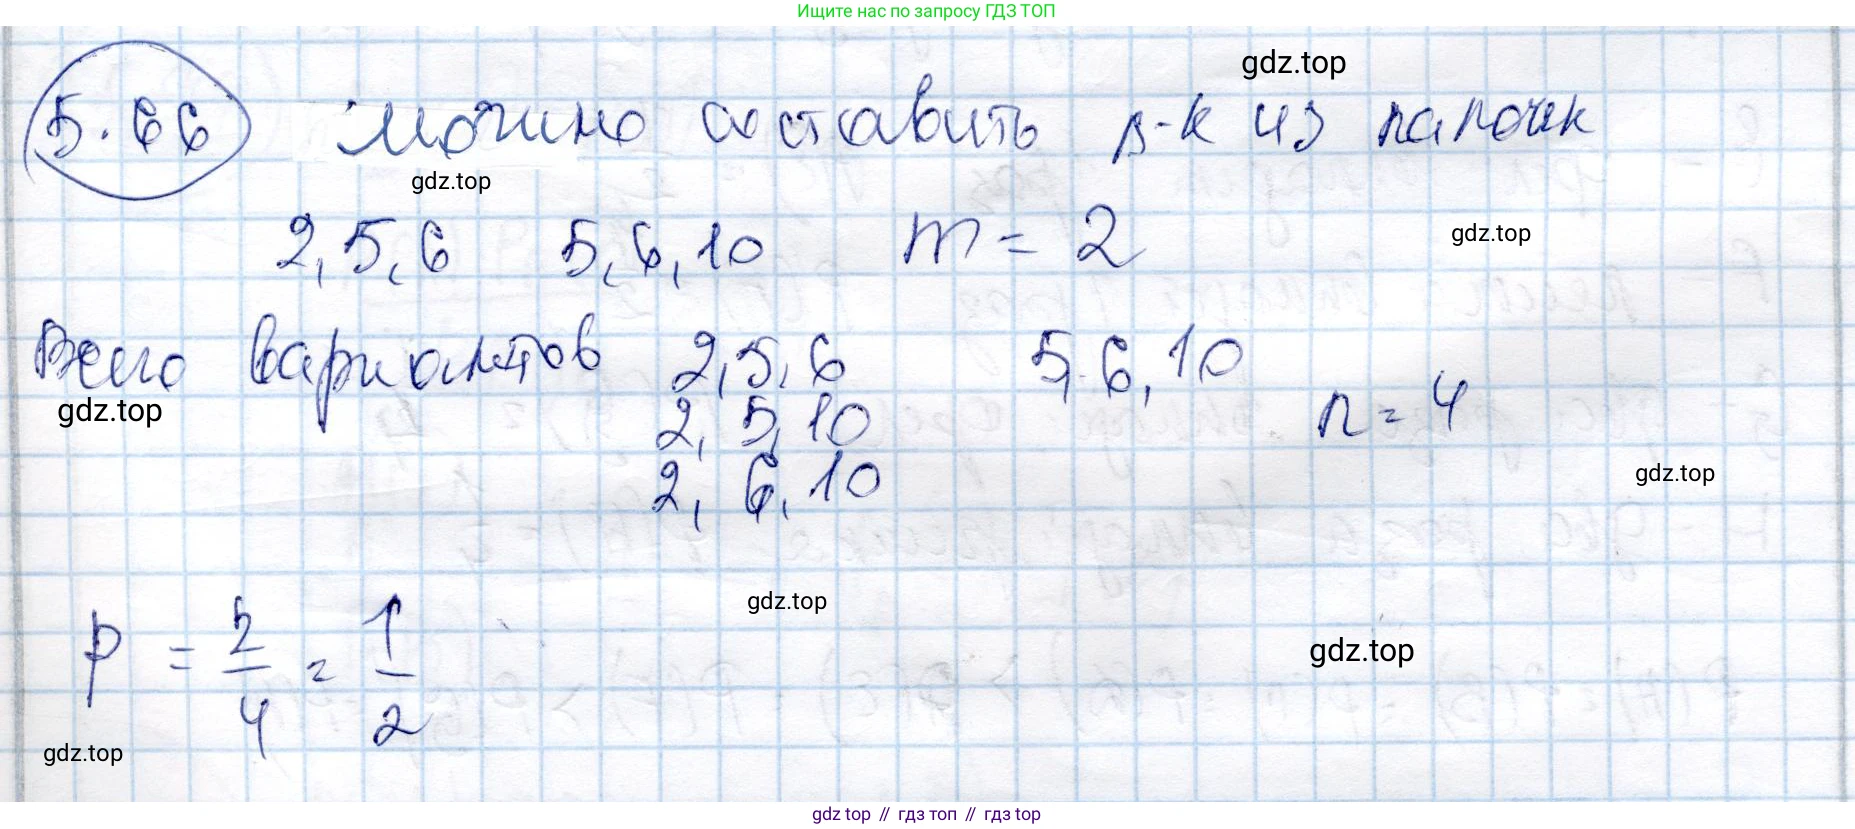 Ищите нас по запросу ГДЗ ТОП
gdz.top
5.66 Можно составить Δ-к из палочек
gdz.top
2, 5, 6 5, 6, 10 m = 2
gdz.top
Всего вариантов 2, 5, 6 5, 6, 10
gdz.top
2, 5, 10 n = 4
2, 6, 10
gdz.top
gdz.top
P = 2/4 = 1/2
gdz.top
gdz.top
gdz top // гдз топ // гдз top